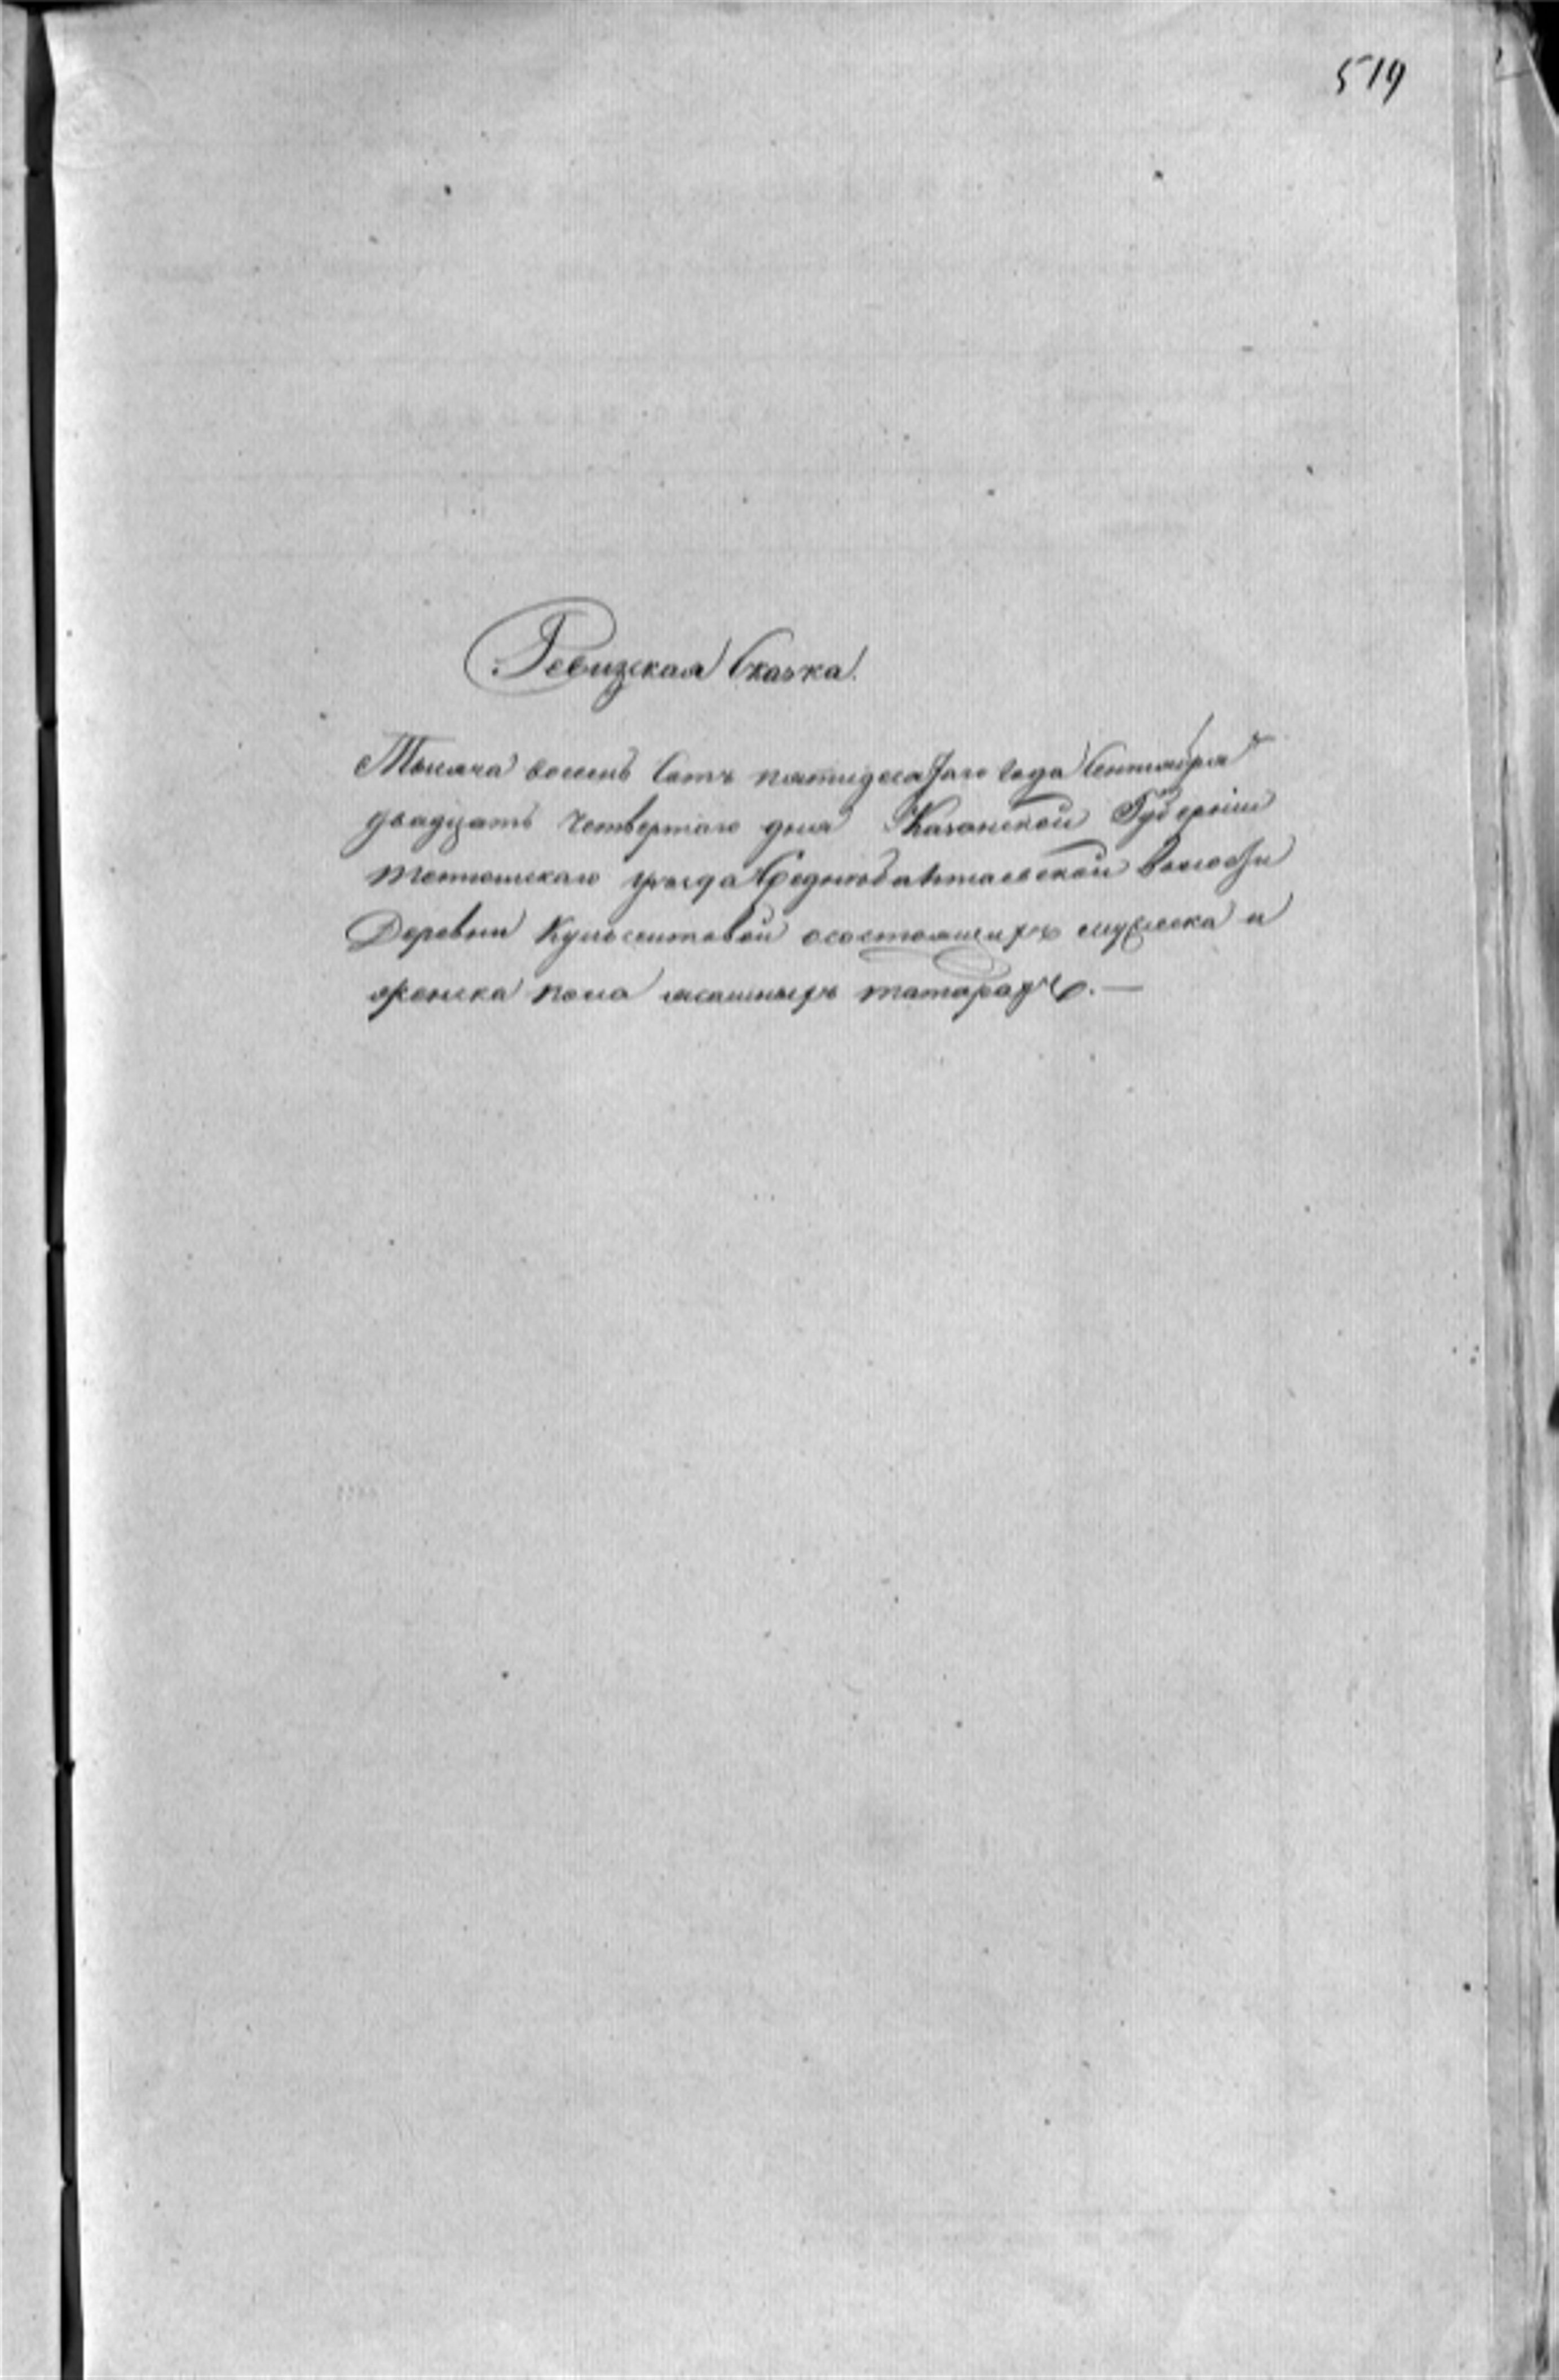 519
Ревизская Сказка.
Тысяча восемь Сотъ пятидесятаго года Сентября
двадцать четвертаго дня Казанской Губерніи
тетюшскаго уѣзда Середнебалтаевской волости
Деревни Кульсеитовой о состоящихъ мужеска и
женска пола ясашныхъ татарахъ. —